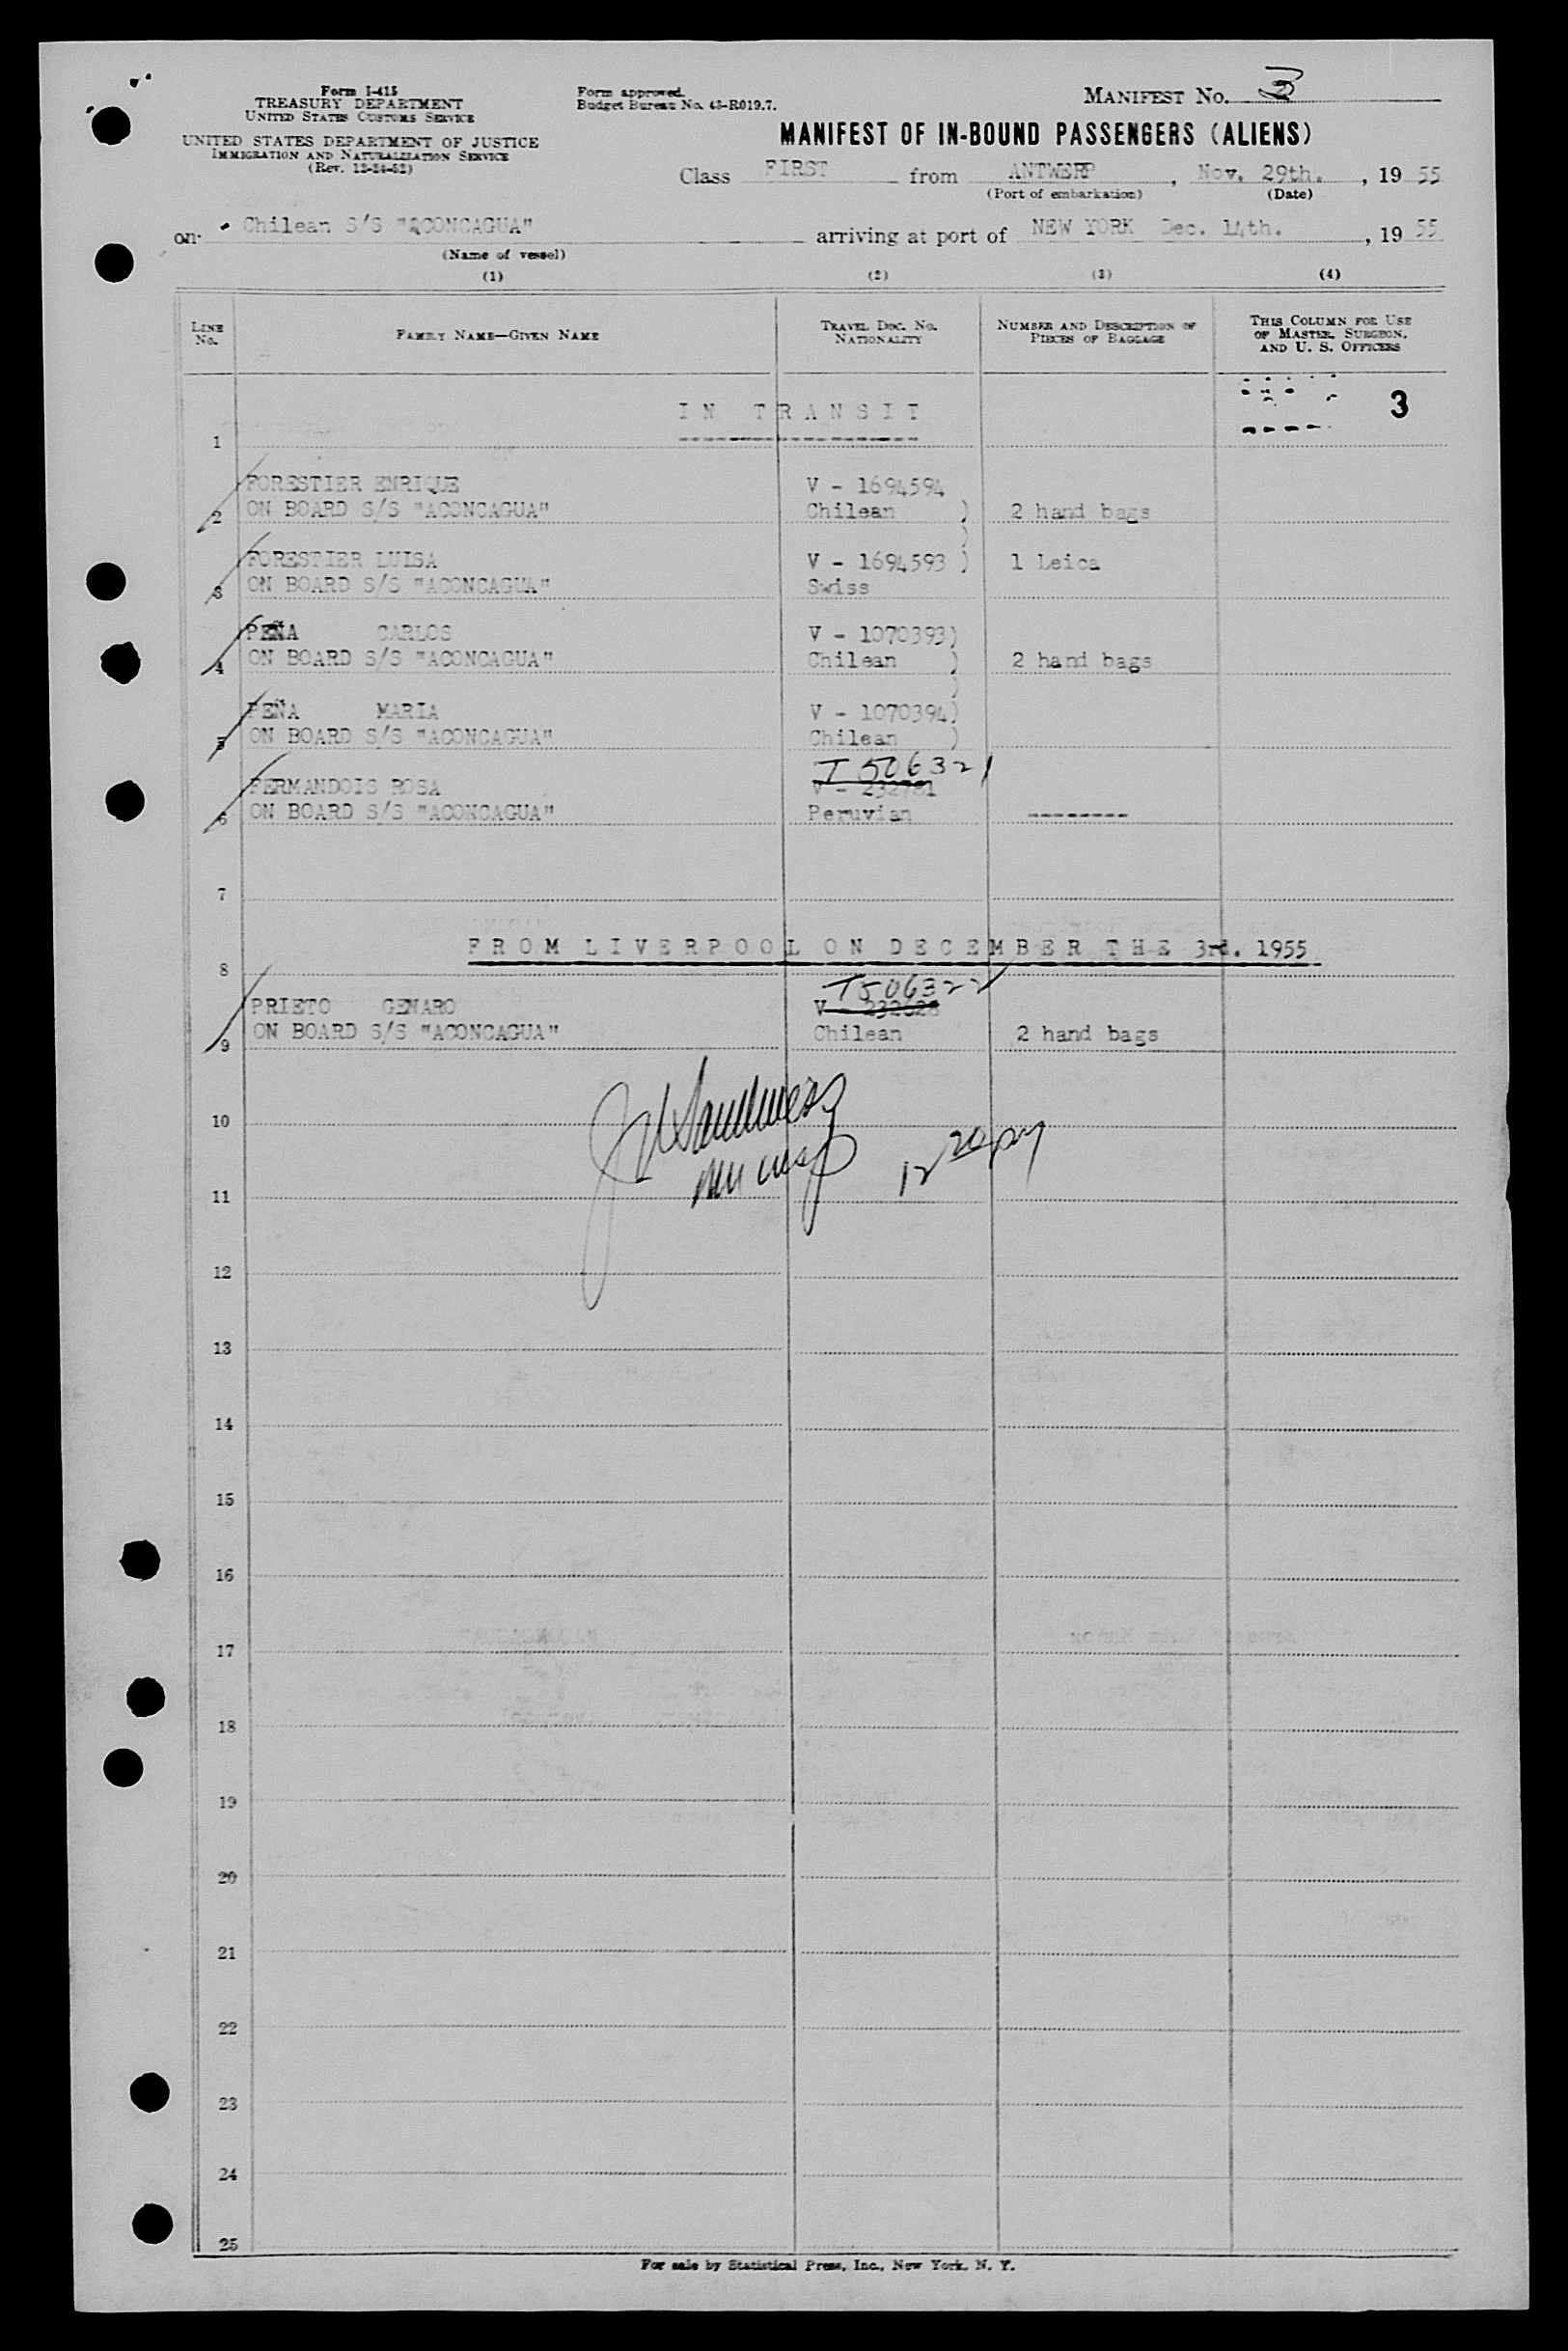 Form I-415
TREASURY DEPARTMENT
UNITED STATES CUSTOMS SERVICE
UNITED STATES DEPARTMENT OF JUSTICE
IMMIGRATION AND NATURALIZATION SERVICE
(Rev. 12-24-52)
Form approved.
Budget Bureau No. 43-R019.7.
MANIFEST No. 3
MANIFEST OF IN-BOUND PASSENGERS (ALIENS)
Class FIRST from ANTWERP, Nov. 29th., 19 55
(Port of embarkation) (Date)
on Chilean S/S "ACONCAGUA" arriving at port of NEW YORK Dec. 14th., 19 55
(Name of vessel)
(1) (2) (3) (4)
LINE No. FAMILY NAME—GIVEN NAME TRAVEL DOC. No. NATIONALITY NUMBER AND DESCRIPTION OF PIECES OF BAGGAGE THIS COLUMN FOR USE OF MASTER, SURGEON, AND U. S. OFFICERS
3
IN TRANSIT
1
FORESTIER ENRIQUE V - 1694594
2 ON BOARD S/S "ACONCAGUA" Chilean ) 2 hand bags
)
FORESTIER LUISA V - 1694593 ) 1 Leica
3 ON BOARD S/S "ACONCAGUA" Swiss
PEÑA CARLOS V - 1070393)
4 ON BOARD S/S "ACONCAGUA" Chilean ) 2 hand bags
)
PEÑA MARIA V - 1070394)
5 ON BOARD S/S "ACONCAGUA" Chilean )
T 506321
FERMANDOIS ROSA V - 232781
6 ON BOARD S/S "ACONCAGUA" Peruvian --------
7
FROM LIVERPOOL ON DECEMBER THE 3rd. 1955
8
T506322
PRIETO GENARO V - 232628
9 ON BOARD S/S "ACONCAGUA" Chilean 2 hand bags
10
11
12
13
14
15
16
17
18
19
20
21
22
23
24
25
For sale by Statistical Press, Inc., New York, N. Y.